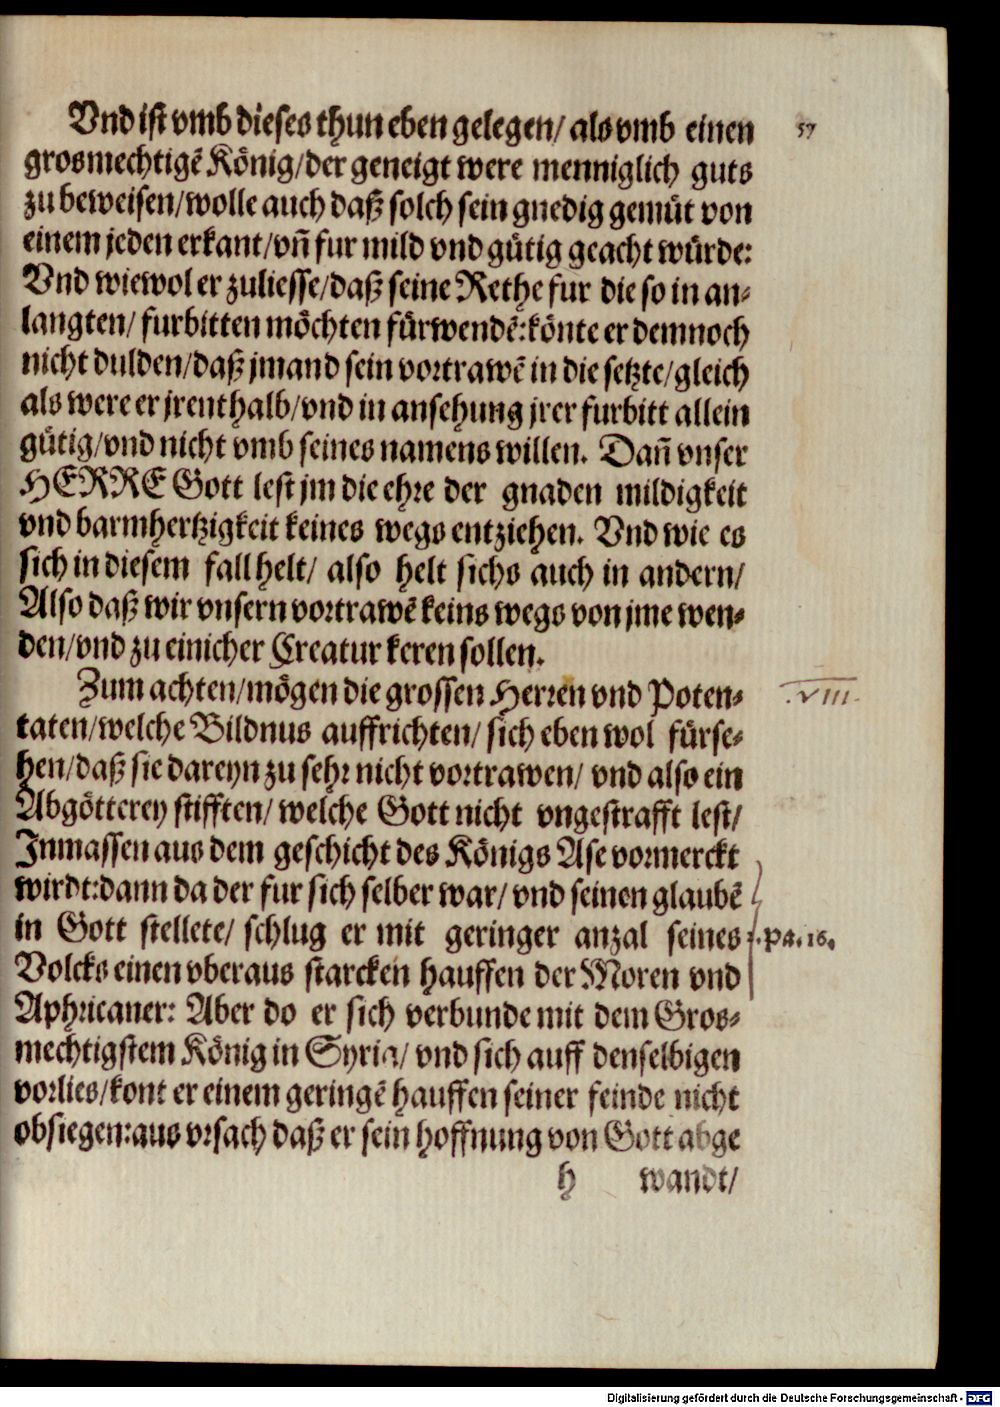 Vnd ist vmb dieses thun eben gelegen/ als vmb einen
57
grosmechtigē König/der geneigt were menniglich guts
zu beweisen/wolle auch daß solch sein gnedig gemüt von
einem jeden erkant/vñ fur mild vnd gütig geacht würde:
Vnd wiewol er zuliesse/daß seine Rethe fur die so in an⸗
langten/ furbitten möchten fürwendē:könte er demnoch
nicht dulden/daß jmand sein vortrawē in die setzte/gleich
als were er jrenthalb/vnd in ansehung jrer furbitt allein
gütig/vnd nicht vmb seines namens willen. Dañ vnser
HERRE Gott lest jm die ehre der gnaden mildigkeit
vnd barmhertzigkeit keines wegs entziehen. Vnd wie es
sich in diesem fall helt/ also helt sichs auch in andern/
Also daß wir vnsern vortrawē keins wegs von jme wen⸗
den/vnd zu einicher Creatur keren sollen.
Zum achten/mögen die grossen Herren vnd Poten⸗
.VIII.
taten/welche Bildnus auffrichten/ sich eben wol fürse⸗
hen/daß sie dareyn zu sehr nicht vortrawen/ vnd also ein
Abgötterey stifften/ welche Gott nicht vngestrafft lest/
Inmassen aus dem geschicht des Königs Ase vormerckt
wirdt:dann da der fur sich selber war/ vnd seinen glaubē
in Gott stellete/ schlug er mit geringer anzal seines
.pa. 16.
Volcks einen vberaus starcken hauffen der Moren vnd
Aphricaner: Aber do er sich verbunde mit dem Gros⸗
mechtigstem König in Syria/ vnd sich auff denselbigen
vorlies/kont er einem geringē hauffen seiner feinde nicht
obsiegen:aus vrsach daß er sein hoffnung von Gott abge
h wandt/
Digitalisierung gefördert durch die Deutsche Forschungsgemeinschaft - DFG